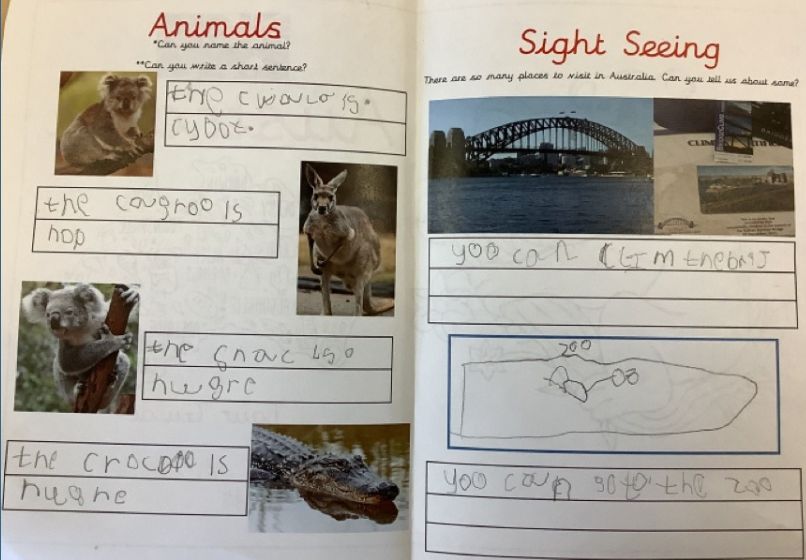 Animals
*Can you name the animal?
**Can you write a short sentence?
the cwaro is.
cybot.
the cougroo is
hop
the gnac is o
hugre
the crocodo is
hugne
Sight Seeing
There are so many places to visit in Australia. Can you tell us about some?
yoo can clim the brij
zoo
yoo can go to the zoo